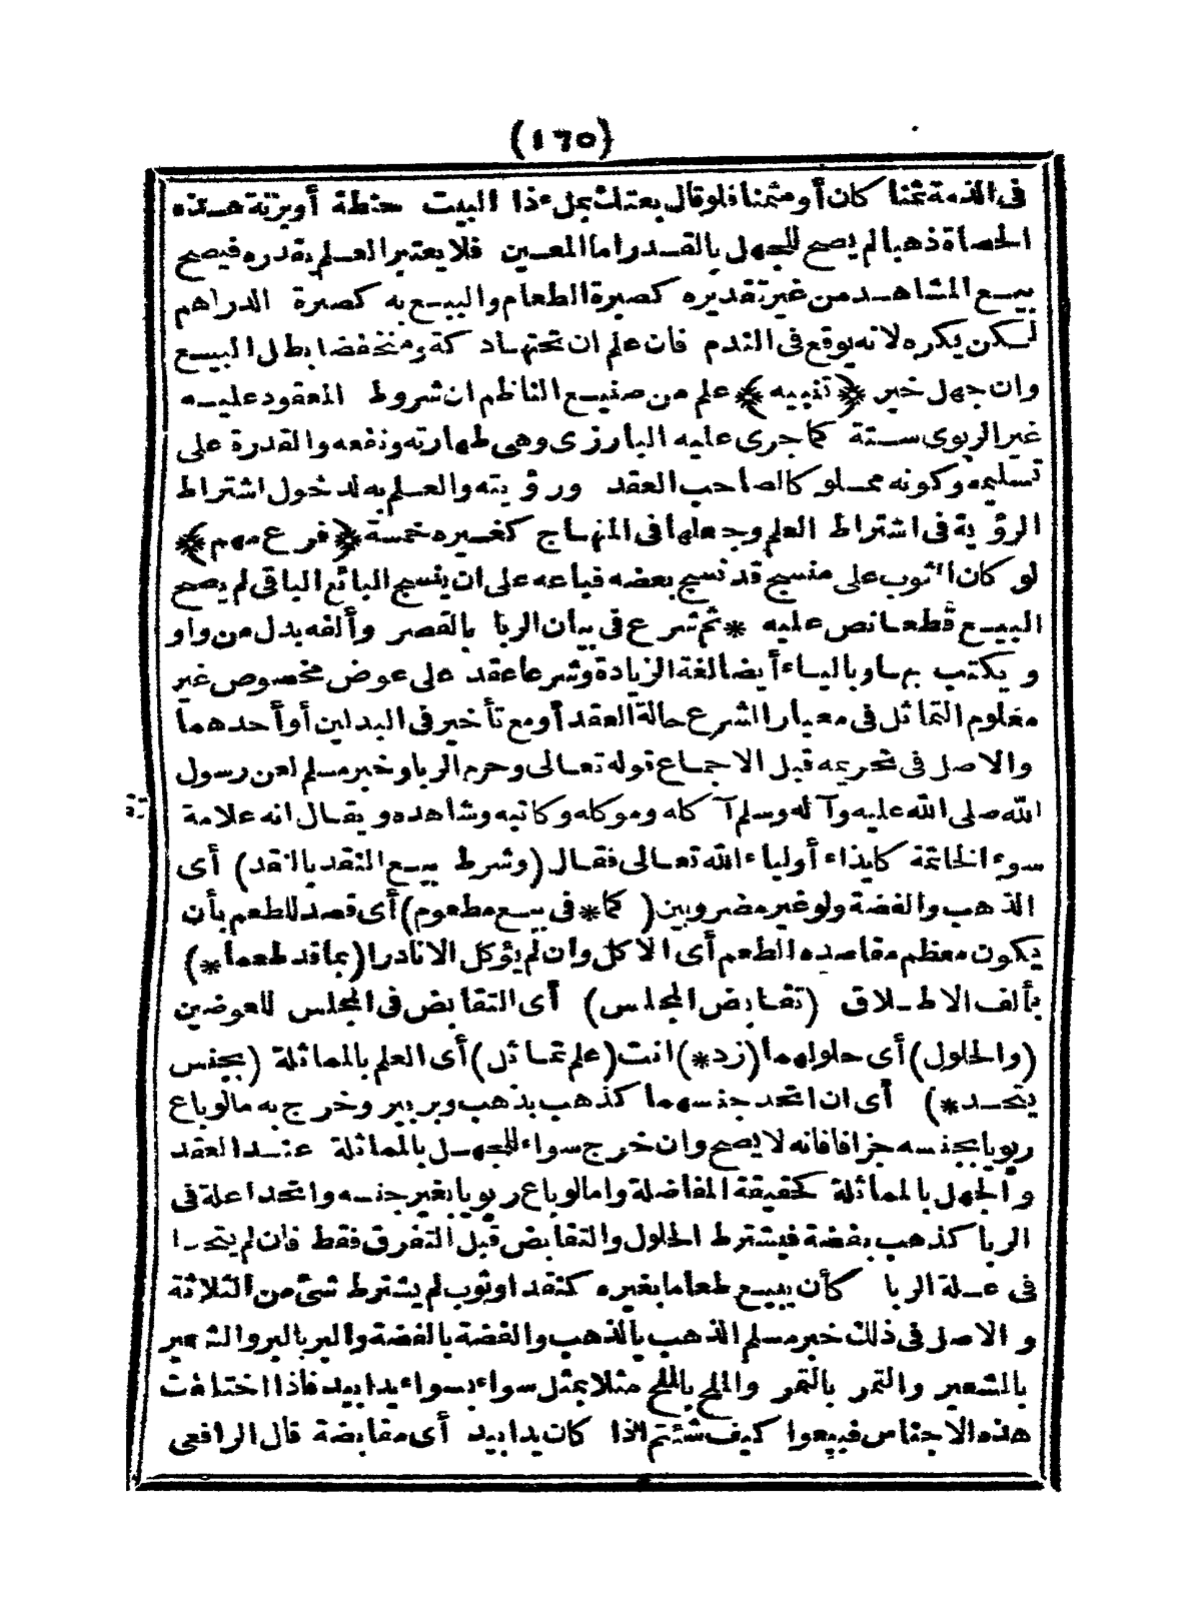 (١٦٥)
فى الذمة ثمنا كان أو مثمنا فلو قال بعتك بملء ذا البيت حنطة أو بزنة هذه
الحصاة ذهبا لم يصح للجهل بالقدر اما المعين فلا يعتبر العلم بقدره فيصح
بيع المشاهد من غير تقديره كصبرة الطعام والبيع به كصبرة الدراهم
لكن يكره لانه يوقع فى الندم فان علم ان تحتها دكة ومنخفضا بطل البيع
وان جهل خير ﴿تنبيه﴾ علم من صنيع الناظم ان شروط المعقود عليه
غير الربوى ستة كما جرى عليه البارزى وهى طهارته ونفعه والقدرة على
تسليمه وكونه مملوكا لصاحب العقد ورؤيته والعلم به لدخول اشتراط
الرؤية فى اشتراط العلم وجعلها فى المنهاج كغيره خمسة ﴿فرع مهم﴾
لو كان الثوب على منسج قد نسج بعضه فباعه على ان ينسج البائع الباقى لم يصح
البيع قطعا نص عليه * ثم شرع فى بيان الربا بالقصر وألفه بدل من واو
ويكتب بهما وبالياء أيضا لغة الزيادة وشرعا عقد على عوض مخصوص غير
معلوم التماثل فى معيار الشرع حالة العقد أو مع تأخير فى البدلين أو أحدهما
والاصل فى تحريمه قبل الاجماع قوله تعالى وحرم الربا وخبر مسلم لعن رسول
الله صلى الله عليه وآله وسلم آكله وموكله وكاتبه وشاهده ويقال انه علامة
سوء الخاتمة كايذاء أولياء الله تعالى فقال (وشرط بيع النقد بالنقد) أى
الذهب والفضة ولو غير مضروبين (كما * فى بيع مطعوم) أى قصد للطعم بأن
يكون معظم مقاصده الطعم أى الاكل وان لم يؤكل الا نادرا (بما قد طعما *)
بألف الاطلاق (تقابض المجلس) أى التقابض فى المجلس للعوضين
(والحلول) أى حلولهما (زد *) انت (علم تماثل) أى العلم بالمماثلة (بجنس
يتحد *) أى ان اتحد جنسهما كذهب بذهب وبر ببر وخرج به ما لو باع
ربويا بجنسه جزافا فانه لا يصح وان خرج سواء للجهل بالمماثلة عند العقد
والجهل بالمماثلة كحقيقة المفاضلة واما لو باع ربويا بغير جنسه واتحدا علة فى
الربا كذهب بفضة فيشترط الحلول والتقابض قبل التفرق فقط فان لم يتحدا
فى علة الربا كأن يبيع طعاما بغيره كنقد او ثوب لم يشترط شئ من الثلاثة
والاصل فى ذلك خبر مسلم الذهب بالذهب والفضة بالفضة والبر بالبر والشعير
بالشعير والتمر بالتمر والملح بالملح مثلا بمثل سواء بسواء يدا بيد فاذا اختلفت
هذه الاجناس فبيعوا كيف شئتم اذا كان يدا بيد أى مقابضة قال الرافعى